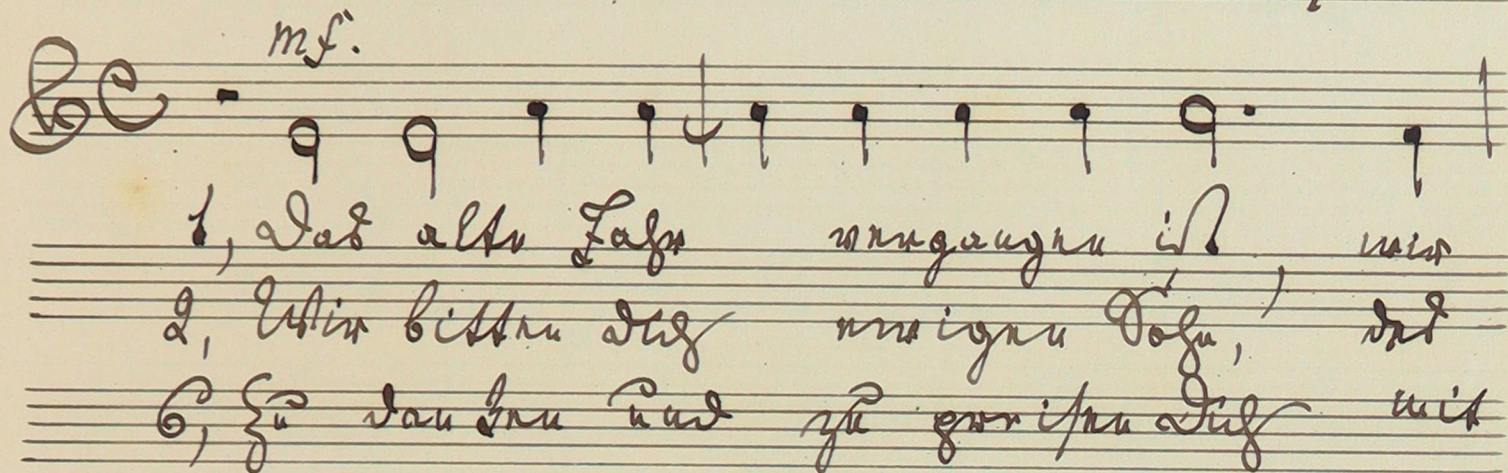 mf.
1, Das alte Jahr vergangen ist wir
2, Wir bitten dich ewigen Sohn, des
6, Zu danken und zu preisen Dich mit